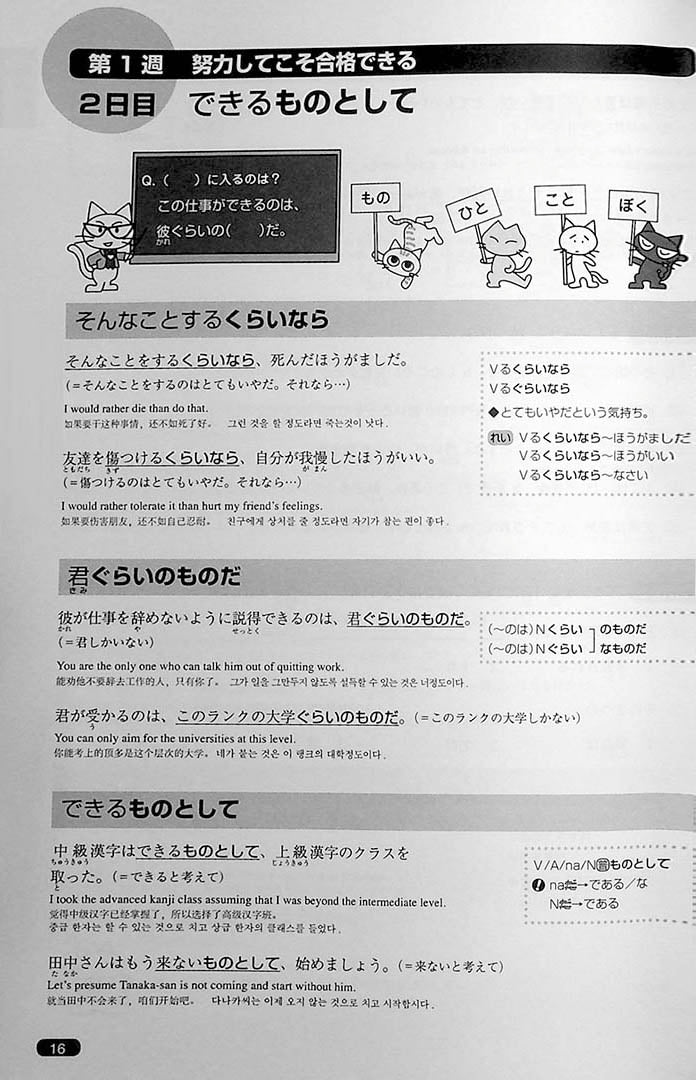 第1週 努力してこそ合格できる
2日目 できるものとして
Q.( )に入るのは?
この仕事ができるのは、
彼ぐらいの( )だ。
かれ
もの
ひと
こと
ぼく
そんなことするくらいなら
そんなことをするくらいなら、死んだほうがましだ。
(=そんなことをするのはとてもいやだ。それなら…)
I would rather die than do that.
如果要干这种事情，还不如死了好。 그런 것을 할 정도라면 죽는것이 낫다.
友達を傷つけるくらいなら、自分が我慢したほうがいい。
ともだち きず がまん
(=傷つけるのはとてもいやだ。それなら…)
I would rather tolerate it than hurt my friend's feelings.
如果要伤害朋友，还不如自己忍耐。 친구에게 상처를 줄 정도라면 자기가 참는 편이 좋다.
Vるくらいなら
Vるぐらいなら
◆とてもいやだという気持ち。
れい Vるくらいなら～ほうがましだ
Vるくらいなら～ほうがいい
Vるくらいなら～なさい
君ぐらいのものだ
きみ
彼が仕事を辞めないように説得できるのは、君ぐらいのものだ。
かれ や せっとく
(=君しかいない)
You are the only one who can talk him out of quitting work.
能劝他不要辞去工作的人，只有你了。 그가 일을 그만두지 않도록 설득할 수 있는 것은 너정도이다.
君が受かるのは、このランクの大学ぐらいのものだ。(=このランクの大学しかない)
う
You can only aim for the universities at this level.
你能考上的顶多是这个层次的大学。 네가 붙는 것은 이 랭크의 대학정도이다.
(～のは)Nくらい のものだ
(～のは)Nぐらい なものだ
できるものとして
中級漢字はできるものとして、上級漢字のクラスを
ちゅうきゅう じょうきゅう
取った。(=できると考えて)
と
I took the advanced kanji class assuming that I was beyond the intermediate level.
觉得中级汉字已经掌握了，所以选择了高级汉字班。
중급 한자는 할 수 있는 것으로 치고 상급 한자의 클래스를 들었다.
田中さんはもう来ないものとして、始めましょう。(=来ないと考えて)
たなか
Let's presume Tanaka-san is not coming and start without him.
就当田中不会来了，咱们开始吧。 다나카씨는 이제 오지 않는 것으로 치고 시작합시다.
V/A/na/N普ものとして
! naだ→である/な
Nだ→である
16